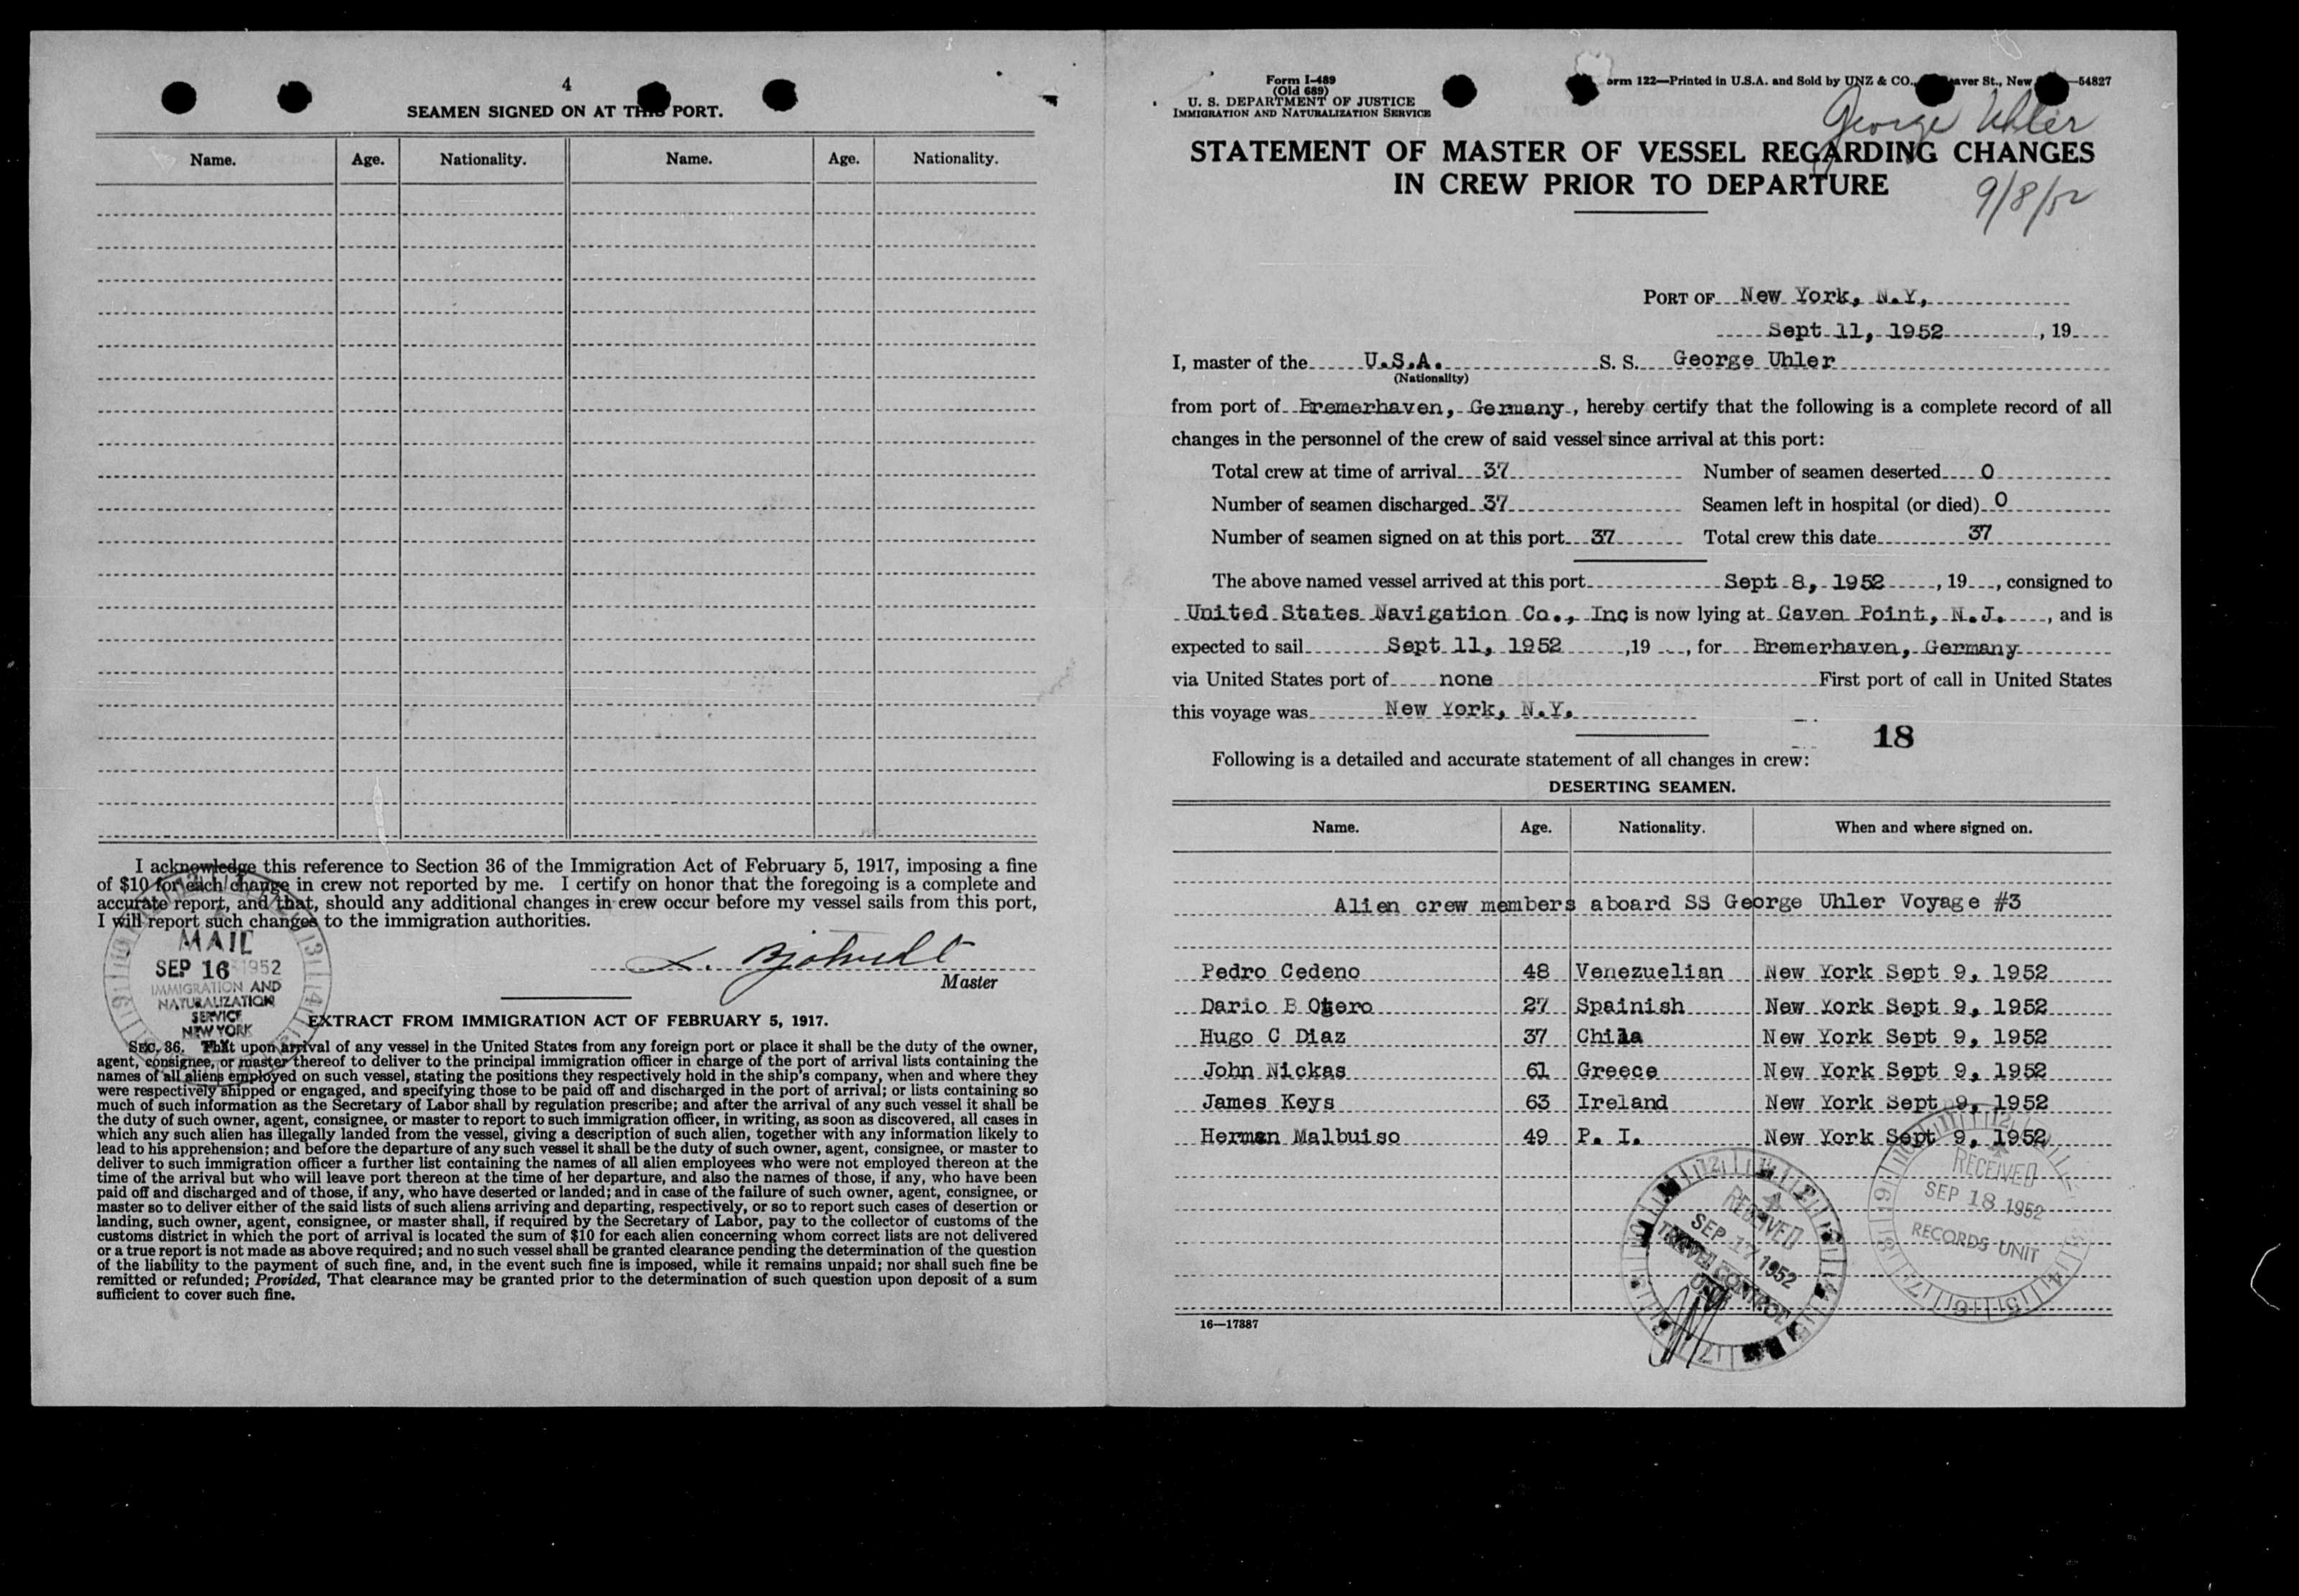 4
SEAMEN SIGNED ON AT THIS PORT.
Name. Age. Nationality. Name. Age. Nationality.
I acknowledge this reference to Section 36 of the Immigration Act of February 5, 1917, imposing a fine
of $10 for each change in crew not reported by me. I certify on honor that the foregoing is a complete and
accurate report, and that, should any additional changes in crew occur before my vessel sails from this port,
I will report such changes to the immigration authorities.
MAIL
SEP 16 1952
IMMIGRATION AND
NATURALIZATION
SERVICE
NEW YORK
Master
EXTRACT FROM IMMIGRATION ACT OF FEBRUARY 5, 1917.
SEC. 36. That upon arrival of any vessel in the United States from any foreign port or place it shall be the duty of the owner,
agent, consignee, or master thereof to deliver to the principal immigration officer in charge of the port of arrival lists containing the
names of all aliens employed on such vessel, stating the positions they respectively hold in the ship's company, when and where they
were respectively shipped or engaged, and specifying those to be paid off and discharged in the port of arrival; or lists containing so
much of such information as the Secretary of Labor shall by regulation prescribe; and after the arrival of any such vessel it shall be
the duty of such owner, agent, consignee, or master to report to such immigration officer, in writing, as soon as discovered, all cases in
which any such alien has illegally landed from the vessel, giving a description of such alien, together with any information likely to
lead to his apprehension; and before the departure of any such vessel it shall be the duty of such owner, agent, consignee, or master to
deliver to such immigration officer a further list containing the names of all alien employees who were not employed thereon at the
time of the arrival but who will leave port thereon at the time of her departure, and also the names of those, if any, who have been
paid off and discharged and of those, if any, who have deserted or landed; and in case of the failure of such owner, agent, consignee, or
master so to deliver either of the said lists of such aliens arriving and departing, respectively, or so to report such cases of desertion or
landing, such owner, agent, consignee, or master shall, if required by the Secretary of Labor, pay to the collector of customs of the
customs district in which the port of arrival is located the sum of $10 for each alien concerning whom correct lists are not delivered
or a true report is not made as above required; and no such vessel shall be granted clearance pending the determination of the question
of the liability to the payment of such fine, and, in the event such fine is imposed, while it remains unpaid; nor shall such fine be
remitted or refunded; Provided, That clearance may be granted prior to the determination of such question upon deposit of a sum
sufficient to cover such fine.
Form I-489
(Old 689)
U. S. DEPARTMENT OF JUSTICE
IMMIGRATION AND NATURALIZATION SERVICE
orm 122—Printed in U.S.A. and Sold by UNZ & CO., aver St., New —54827
George Uhler
STATEMENT OF MASTER OF VESSEL REGARDING CHANGES
IN CREW PRIOR TO DEPARTURE
9/8/52
PORT OF New York, N.Y,
Sept 11, 1952 , 19
I, master of the U.S.A. S. S. George Uhler
(Nationality)
from port of Bremerhaven, Gemany , hereby certify that the following is a complete record of all
changes in the personnel of the crew of said vessel since arrival at this port:
Total crew at time of arrival 37 Number of seamen deserted 0
Number of seamen discharged 37 Seamen left in hospital (or died) 0
Number of seamen signed on at this port 37 Total crew this date 37
The above named vessel arrived at this port Sept 8, 1952 , 19 , consigned to
United States Navigation Co., Inc is now lying at Caven Point, N.J. , and is
expected to sail Sept 11, 1952 ,19 , for Bremerhaven, Germany
via United States port of none First port of call in United States
this voyage was New York, N.Y.
18
Following is a detailed and accurate statement of all changes in crew:
DESERTING SEAMEN.
Name. Age. Nationality. When and where signed on.
Alien crew members aboard SS George Uhler Voyage #3
Pedro Cedeno 48 Venezuelian New York Sept 9, 1952
Dario B Otero 27 Spainish New York Sept 9, 1952
Hugo C Diaz 37 Chila New York Sept 9, 1952
John Nickas 61 Greece New York Sept 9, 1952
James Keys 63 Ireland New York Sept 9, 1952
Herman Malbuiso 49 P. I. New York Sept 9, 1952
RECEIVED
SEP 17 1952
TRAVEL CONTROL
UNIT
RECEIVED
SEP 18 1952
RECORDS UNIT
16—17887